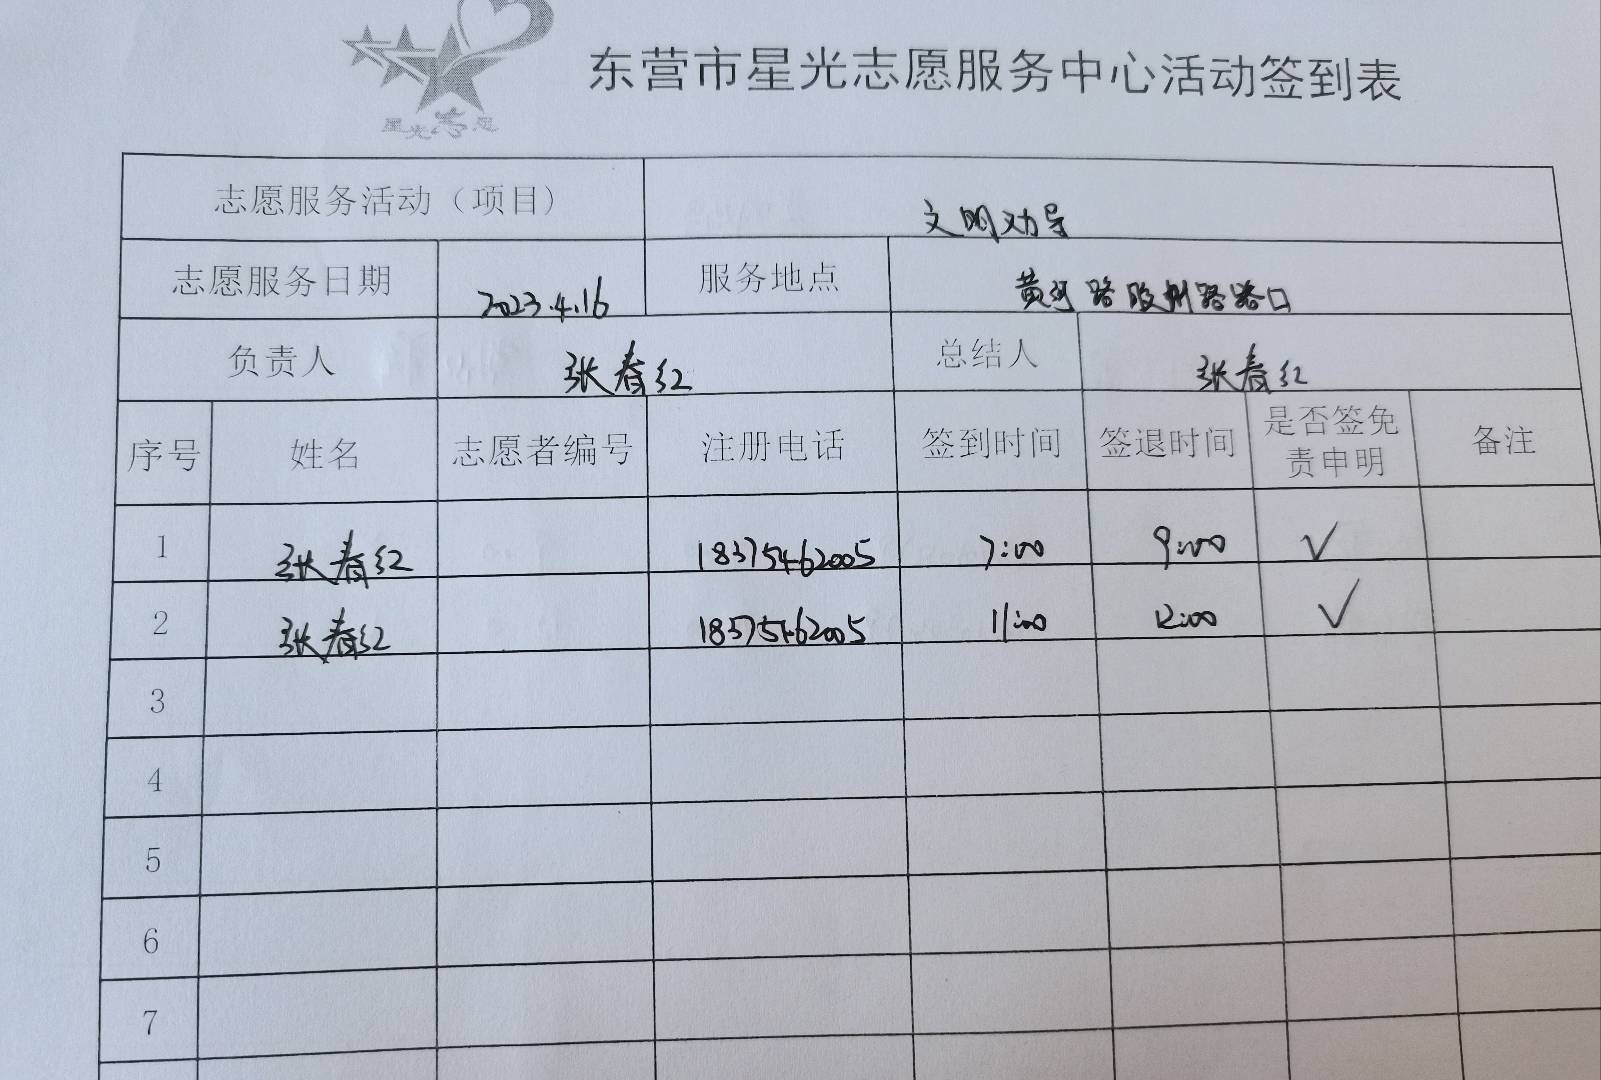 星光志愿
东营市星光志愿服务中心活动签到表
志愿服务活动（项目） 文明劝导
志愿服务日期 2023.4.16 服务地点 黄河路胶州路路口
负责人 张春红 总结人 张春红
序号 姓名 志愿者编号 注册电话 签到时间 签退时间 是否签免责申明 备注
1 张春红 18375462005 7:00 9:00 ✓
2 张春红 18375462005 11:00 12:00 ✓
3
4
5
6
7